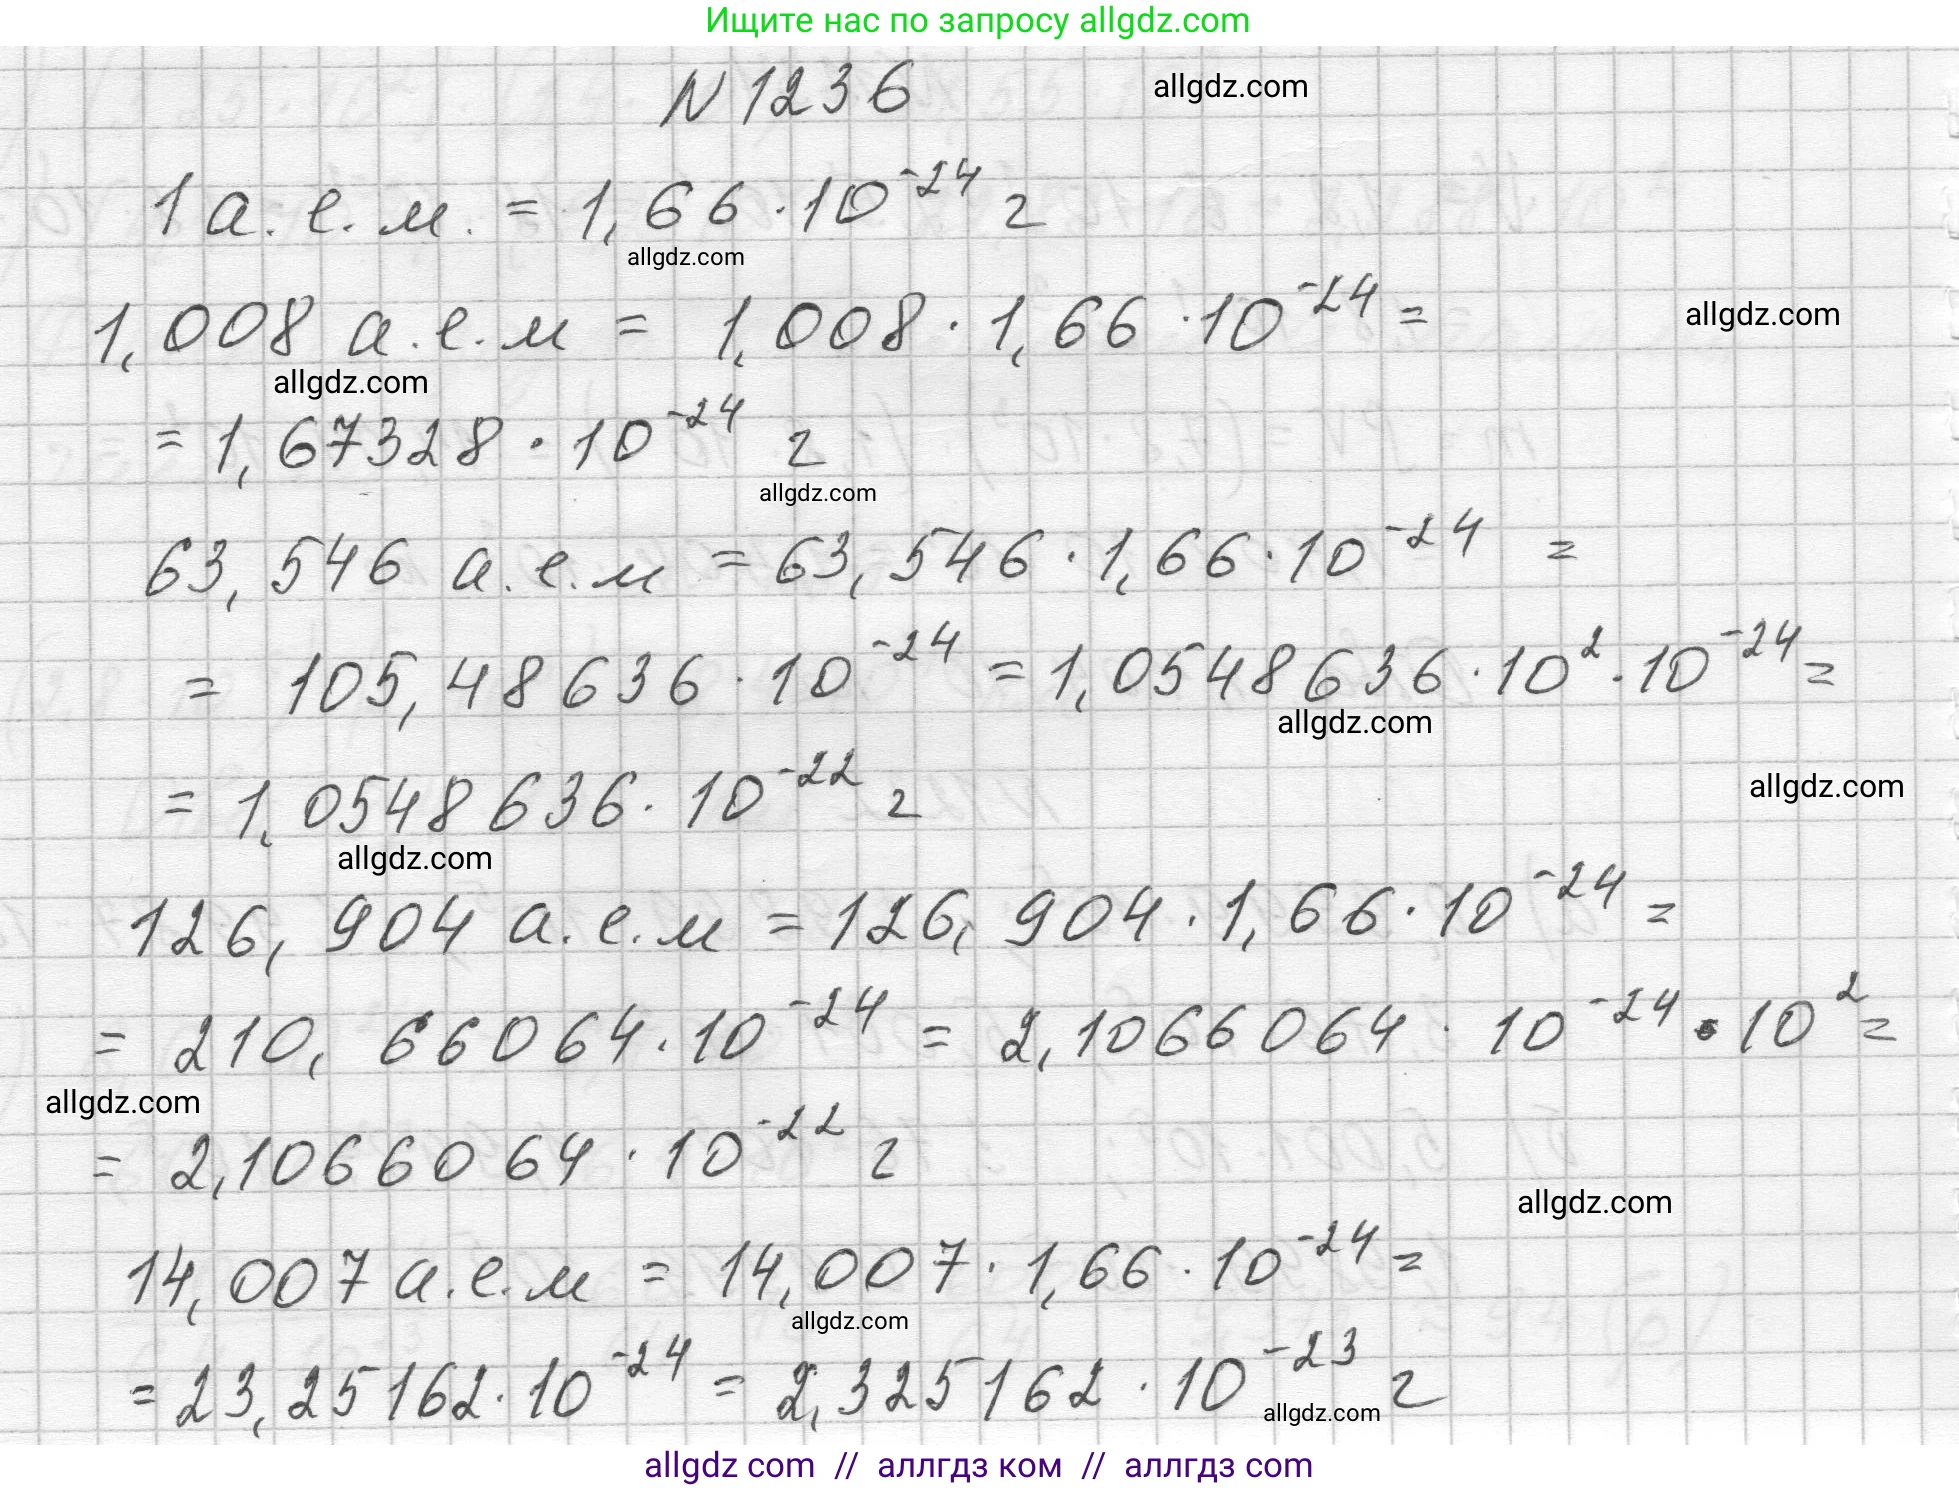 Ищите нас по запросу allgdz.com
N 1236
allgdz.com
1 а.е.м. = 1,66 · 10⁻²⁴ г
allgdz.com
1,008 а.е.м = 1,008 · 1,66 · 10⁻²⁴ =
allgdz.com
allgdz.com
= 1,67328 · 10⁻²⁴ г
allgdz.com
63,546 а.е.м = 63,546 · 1,66 · 10⁻²⁴ =
= 105,48636 · 10⁻²⁴ = 1,0548636 · 10² · 10⁻²⁴ =
allgdz.com
= 1,0548636 · 10⁻²² г
allgdz.com
allgdz.com
126,904 а.е.м = 126,904 · 1,66 · 10⁻²⁴ =
= 210,66064 · 10⁻²⁴ = 2,1066064 · 10⁻²⁴ · 10² =
allgdz.com
= 2,1066064 · 10⁻²² г
allgdz.com
14,007 а.е.м = 14,007 · 1,66 · 10⁻²⁴ =
allgdz.com
= 23,25162 · 10⁻²⁴ = 2,325162 · 10⁻²³ г
allgdz.com
allgdz com // аллгдз ком // аллгдз com